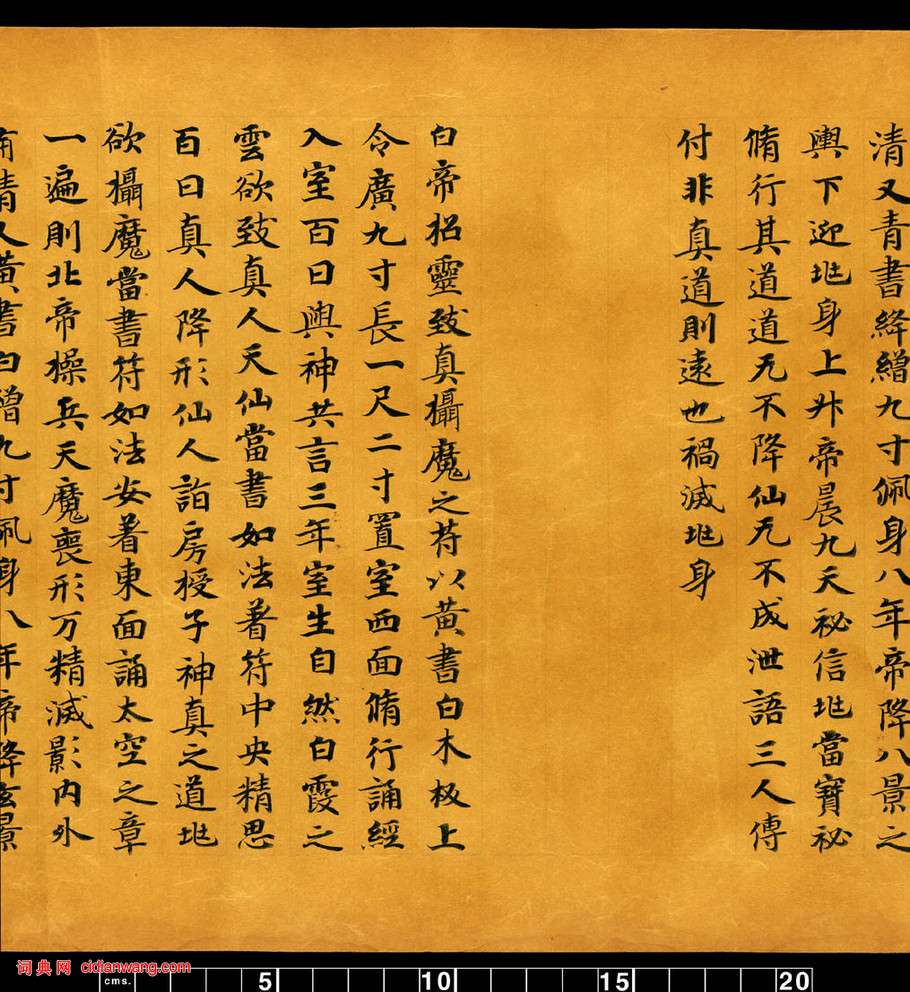 清又青書絳繒九寸佩身八年帝降八景之
輿下迎𡉄身上升帝晨九天祕信𡉄當寶祕
脩行其道道无不降仙无不成泄語三人傳
付非真道則遠也禍滅𡉄身
白帝招靈致真攝魔之苻以黃書白木板上
令廣九寸長一尺二寸置室西面脩行誦經
入室百日與神共言三年室生自然白霞之
雲欲致真人天仙當書如法著苻中央精思
百日真人降形仙人詣房授子神真之道𡉄
欲攝魔當書苻如法安著東面誦太空之章
一遍則北帝操兵天魔喪形万精滅影内外
清又黃書白繒九寸佩身八年帝降 景
词典网 cidianwang.com
cms. 5 10 15 20